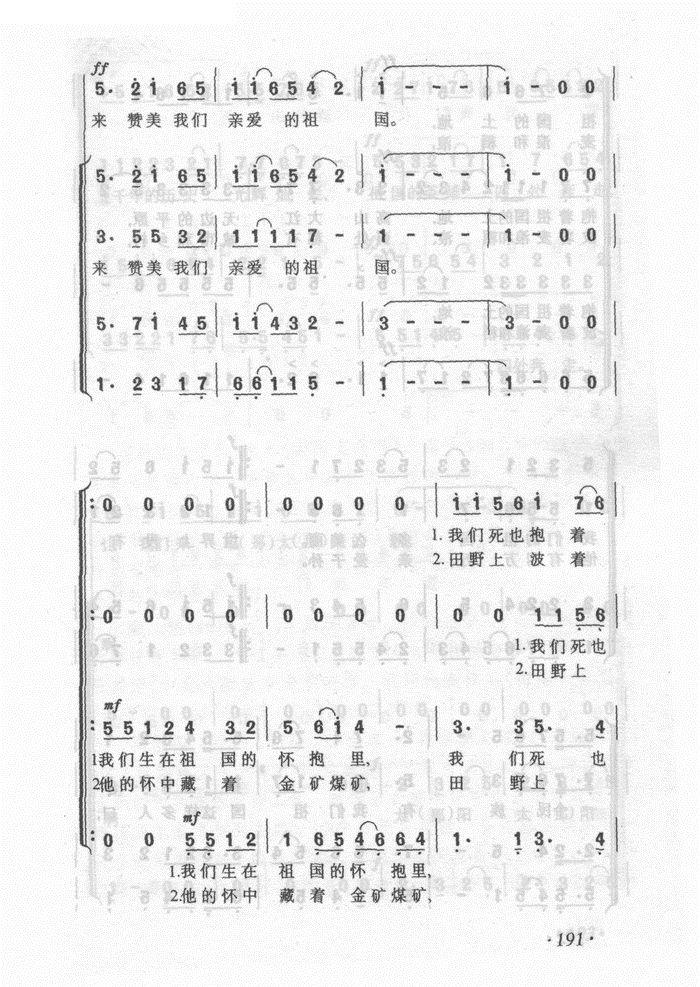 ff
5· 2̇ i 6 5 | i i 6 5 4 2 | i - - - | i - 0 0
来 赞美 我们 亲爱 的祖 国。
5· 2̇ i 6 5 | i i 6 5 4 2 | i - - - | i - 0 0
3· 5 5 3 2 | 1 1 1 1 7 - | 1 - - - | 1 - 0 0
来 赞美 我们 亲爱 的祖 国。
5· 7 i 4 5 | i i 4 3 2 - | 3 - - - | 3 - 0 0
1· 2 3 1 7 | 6 6 1 1 5 - | 1 - - - | 1 - 0 0
:0 0 0 0 | 0 0 0 0 | i i 5 6 i 7 6
1.我们死也抱 着
2.田野上 波着
:0 0 0 0 | 0 0 0 0 | 0 0 1 1 5 6
1.我们死也
2.田野上
mf
:5 5 1 2 4 3 2 | 5 6 i 4 - | 3· 3 5· 4
1我们生在祖 国的 怀 抱里, 我 们死 也
2他的怀中藏 着 金矿煤矿, 田 野上
mf
:0 0 5 5 1 2 | 1 6 5 4 6 6 4 | 1· 1 3· 4
1.我们生在 祖 国的怀 抱里,
2.他的怀中 藏 着 金矿煤矿,
·191·